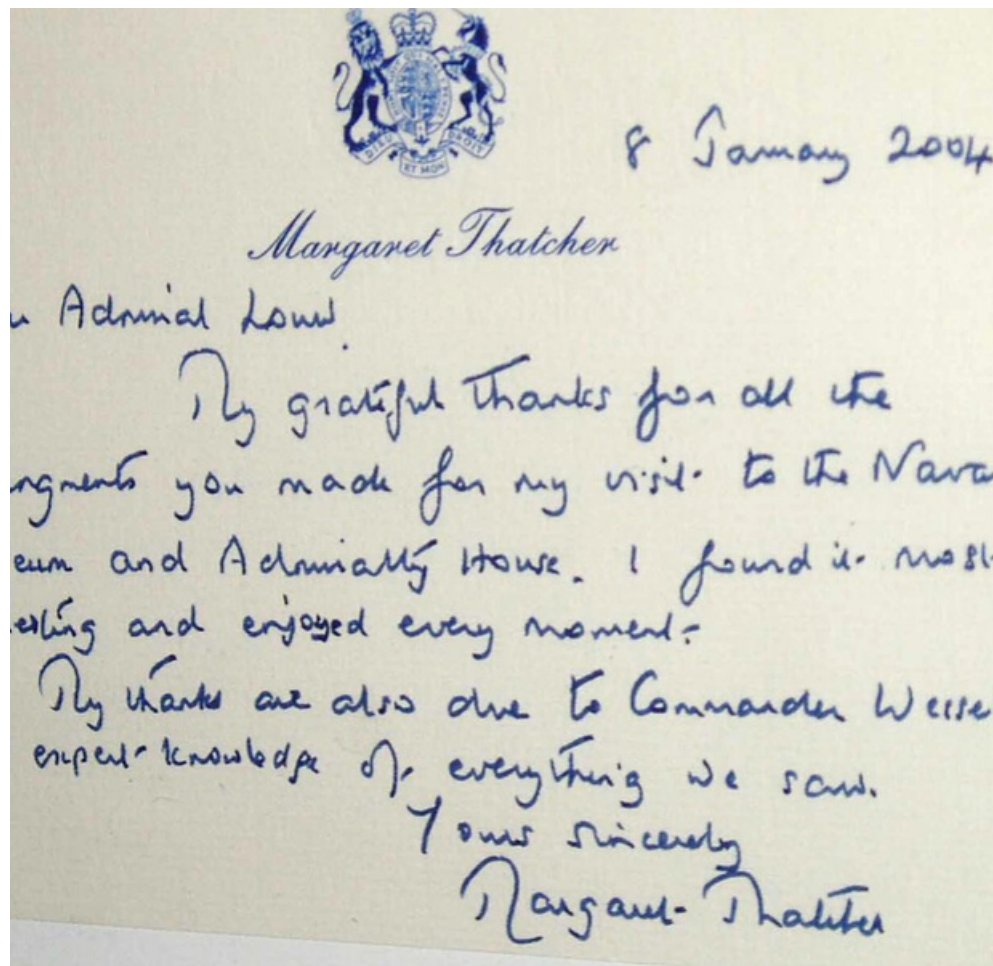 DIEU ET MON DROIT
8 January 2004
Margaret Thatcher
Admiral Louw
My grateful thanks for all the
ngments you made for my visit to the Nava
eum and Admiralty House. I found it most
esting and enjoyed every moment.
My thanks are also due to Commander Wesse
expert knowledge of everything we saw.
Yours sincerely
Margaret Thatcher